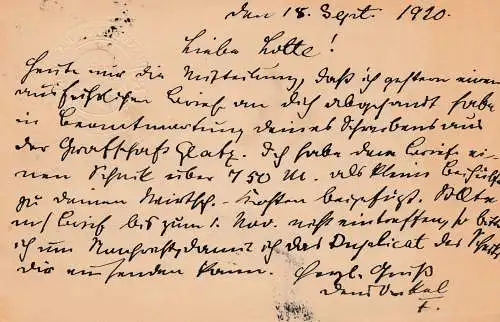 den 18. Sept. 1920.
Liebe Lotte!
Heute nur die Mitteilung, daß ich gestern einen
ausführlichen Brief an dich abgesandt habe
in Beantwortung deines Schreibens aus
der Grafschaft Glatz. Ich habe dem Brief ei-
nen Scheck über 750 M. als kleine Beihülfe
zu deinen Wirtsch.-Kosten beigefügt. Sollte
m/ Brief bis zum 1. Nov. nicht eintreffen, so bitte
ich um Nachricht, damit ich das Duplicat des Schecks
dir einsenden kann. Herzl. Gruß
dein Onkel
F.